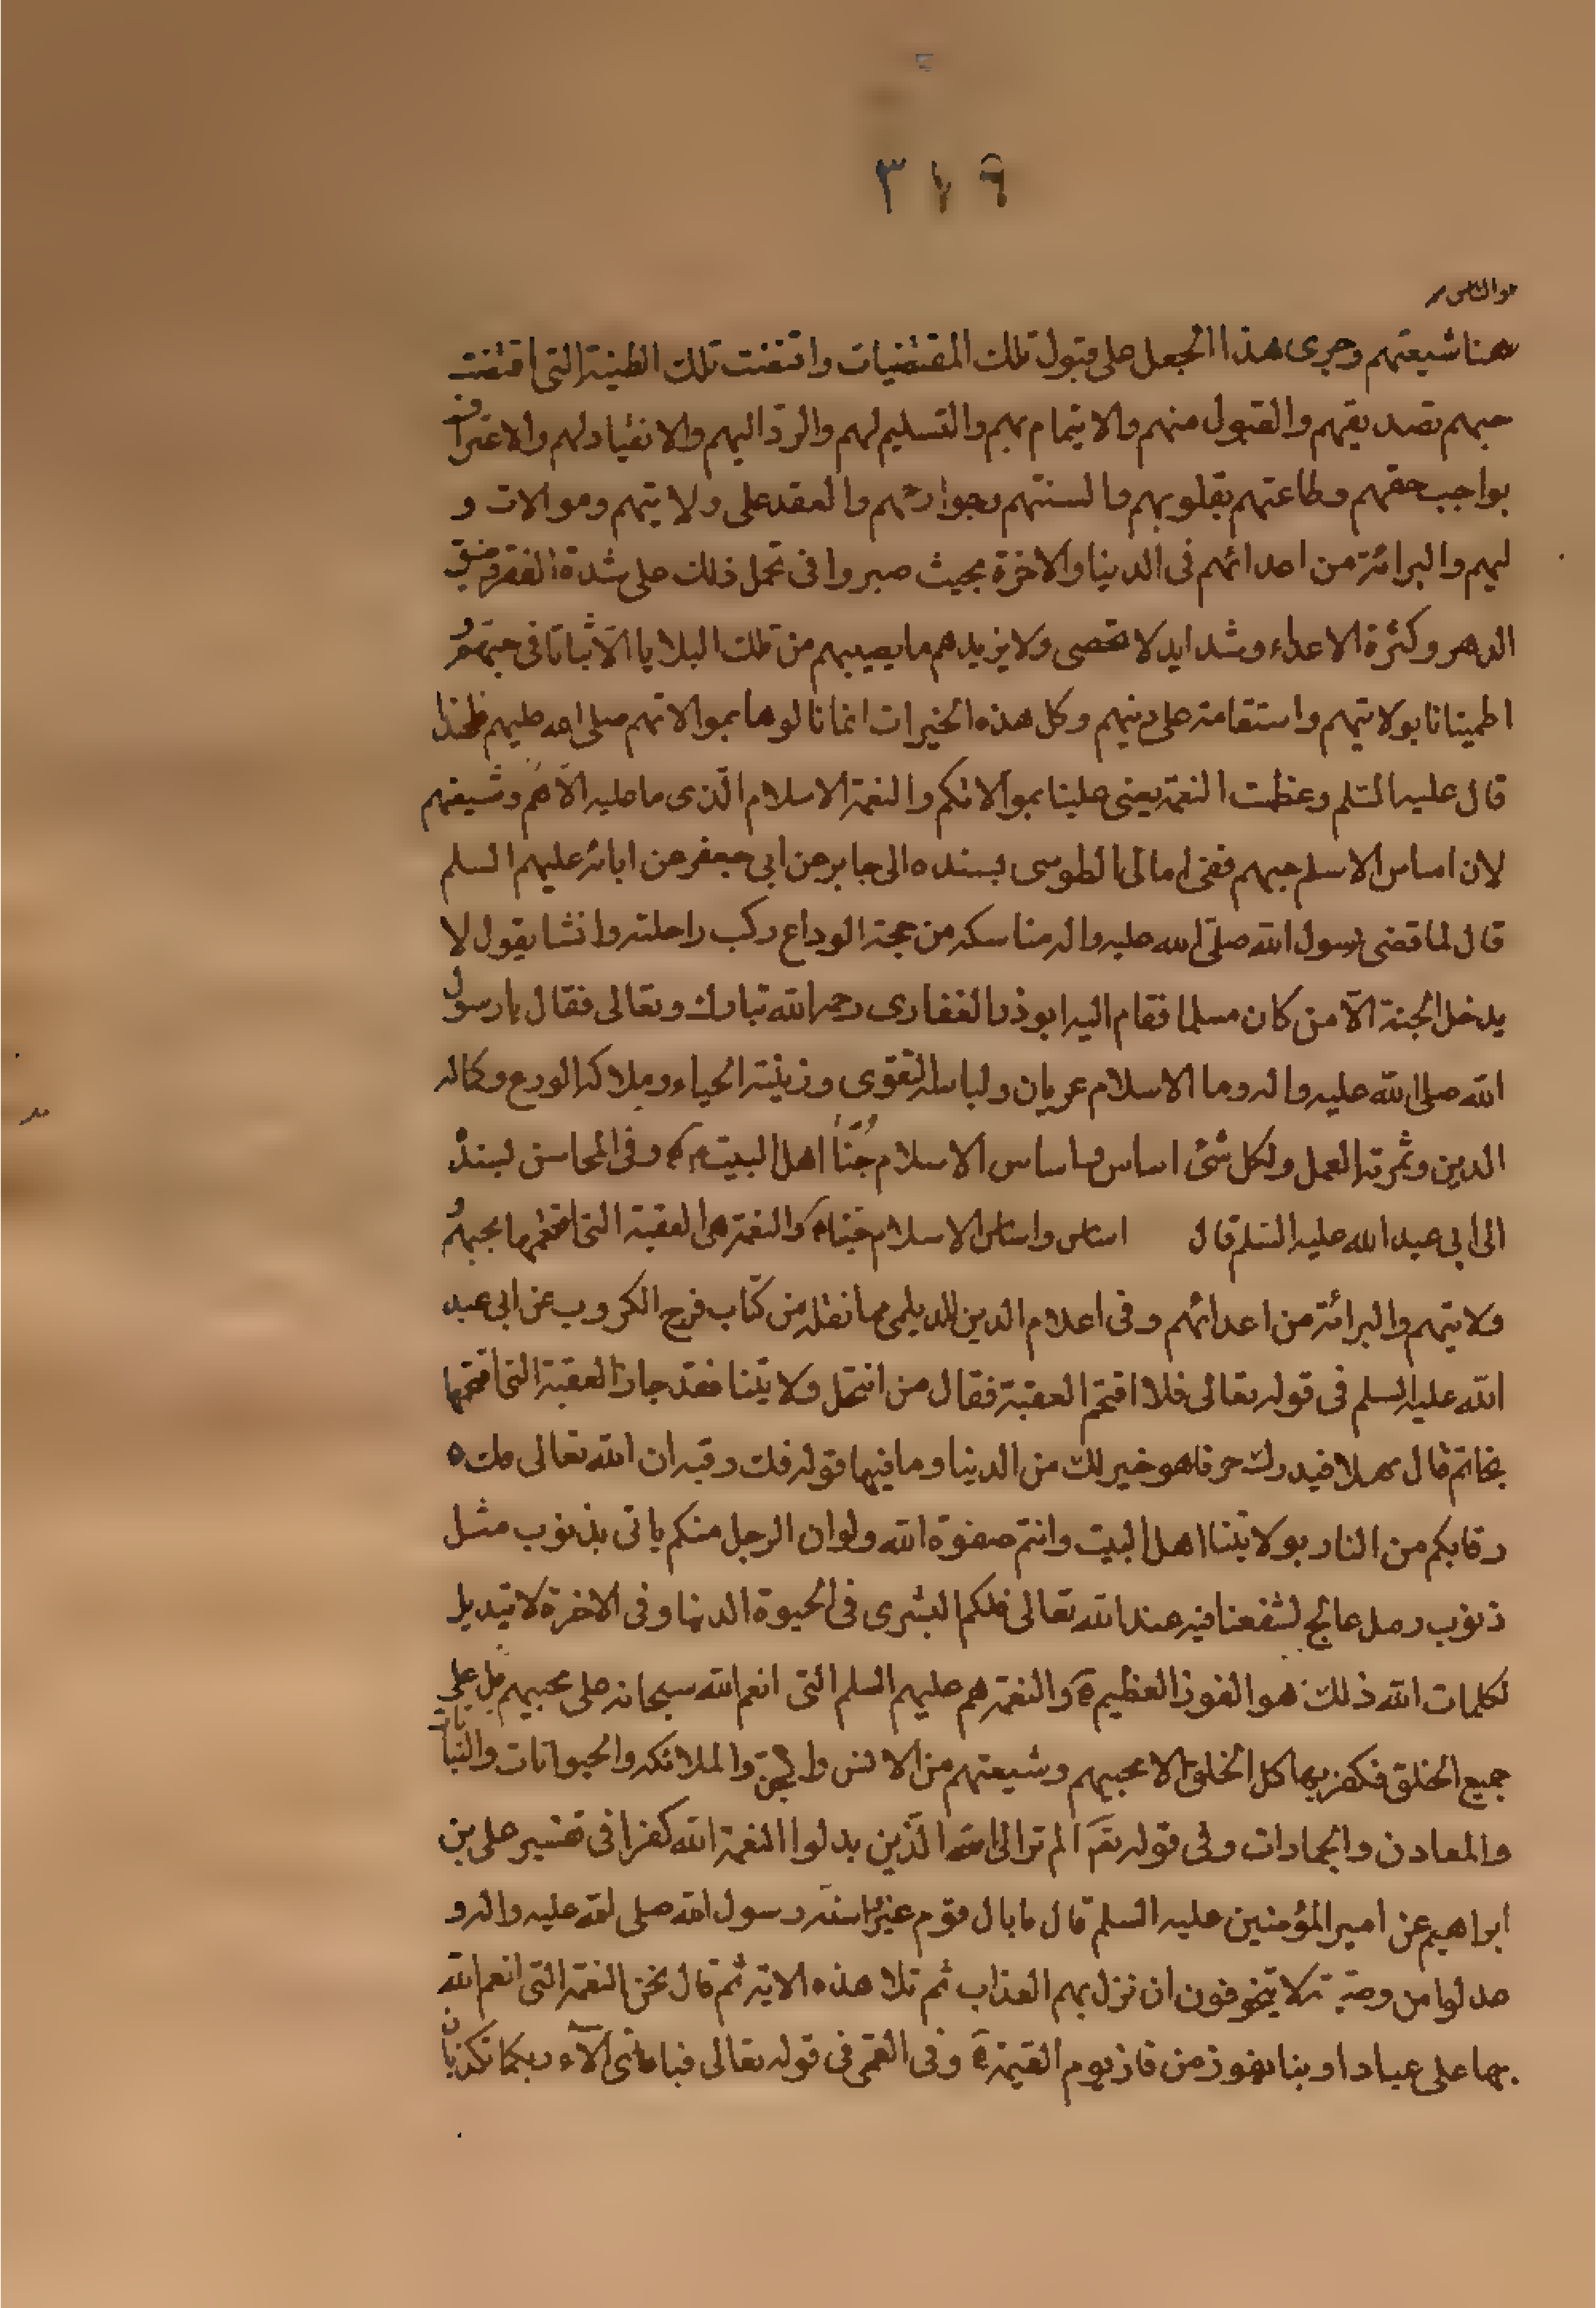 ٣١٩
والناس
هنا شيعتهم وجرى هذا الجعل على قبول تلك المقتضيات واقتضت تلك الطينة التى اقتضت
حبهم تصديقهم والقبول منهم والايتمام بهم والتسليم لهم والرد اليهم والانقياد لهم والاعتراف
بواجب حقهم وطاعتهم بقلوبهم والسنتهم وجوارحهم والعقد على ولايتهم وموالات و
ليهم والبرائة من اعدائهم فى الدينا والاخرة بحيث صبروا فى تحمل ذلك على شدة الفقر وضيق
الدهر وكثرة الاعداء وشدايد لا تحصى ولا يزيدهم ما يصيبهم من تلك البلايا الّا ثباتا فى حبهم و
اطمينانا بولايتهم واستقامة على دينهم وكل هذه الخيرات انما نالوها بموالاتهم صلى الله عليهم فلهذا
قال عليه السّلم وعظمت النعمة يعنى علينا بموالاتكم والنعمة الاسلام الّذى ما عليه الّا هم وشيعتهم
لان اساس الاسلم حبهم ففى امالى الطوسى بسنده الى جابر عن ابى جعفر عن ابائه عليهم السلم
قال لما قضى رسول الله صلّى الله عليه واله مناسكه من حجة الوداع ركب راحلته وانشا يقول لا
يدخل الجنة الّا من كان مسلما فقام اليه ابوذر الغفارى رحمه الله تبارك وتعالى فقال يا رسول
الله صلى الله عليه واله وما الاسلام عريان ولباسه التقوى وزينته الحياء وملاكه الورع وكماله
الدين وثمرته العمل ولكل شئ اساس واساس الاسلام حُبّنا اهل البيت وفى المحاسن بسنده
الى ابى عبد الله عليه السّلم قال اساس واساس الاسلام حبّنا والنعمة هى العقبة التى اقتحمها بحبهم و
ولايتهم والبرائة من اعدائهم وفى اعلام الدين للديلمى مما نقله من كتاب فرج الكروب عن ابى عبد
الله عليه السلم فى قوله تعالى فلا اقتحم العقبة فقال من انتحل ولايتنا فقد جاز العقبة التى اقتحمها
نجا ثم قال مهلا فيدك حرفا هو خير لك من الدينا وما فيها قوله فك رقبة ان الله تعالى فك
رقابكم من النار بولايتنا اهل البيت وانتم صفوة الله ولو ان الرجل منكم ياتى بذنوب مثل
ذنوب رمل عالج لشفعنا فيه عند الله تعالى فلكم البشرى فى الحيوة الدنيا وفى الاخرة لا تبديل
لكلمات الله ذلك هو الفوز العظيم والنعمة هم عليهم السلم التى انعم الله سبحانه على محبيهم بل على
جميع الخلق فكفر بها كل الخلق الا محبيهم وشيعتهم من الانس والجن والملائكه والحيوانات والنباتات
والمعادن والجمادات وفى قوله تعم الم تر الى الّذين بدلوا النعمة الله كفرا فى تفسير على بن
ابراهيم عن امير المؤمنين عليه السلم قال ما بال قوم غيّروا سنّة رسول الله صلى الله عليه واله و
عدلوا من وصيّته لا يتخوفون ان نزل بهم العذاب ثم تلا هذه الاية ثم قال نحن النعمة التى انعم الله
بها على عباده وبنا يفوز من فاز يوم القيمة وفى القمى فى قوله تعالى فباى الآء ربكما تكذبان